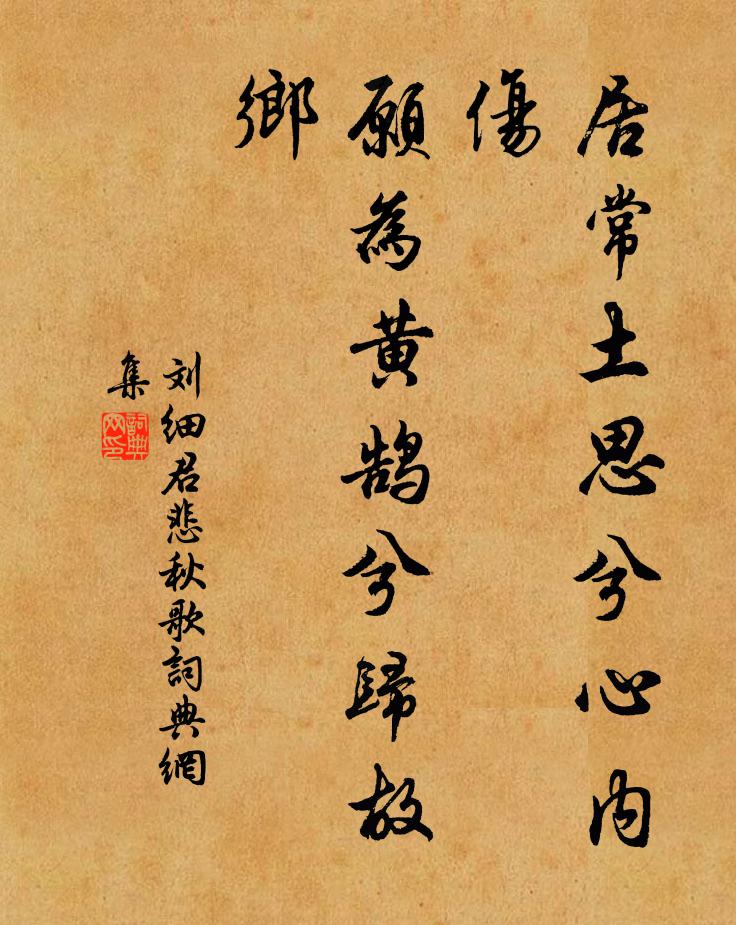 居常土思兮心内
傷
願為黄鹄兮歸故
鄉
刘细君悲秋歌詞典網
集
詞典
网印